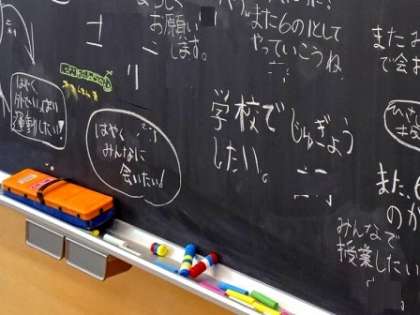 お願い
します。
また6の1として
やっていこうね
また
で会
はやく
外でいっぱい
運動したい
はやく
みんなに
会いたい!
学校で
じゅぎょう
したい。
また6
のか
みんなで
授業したい